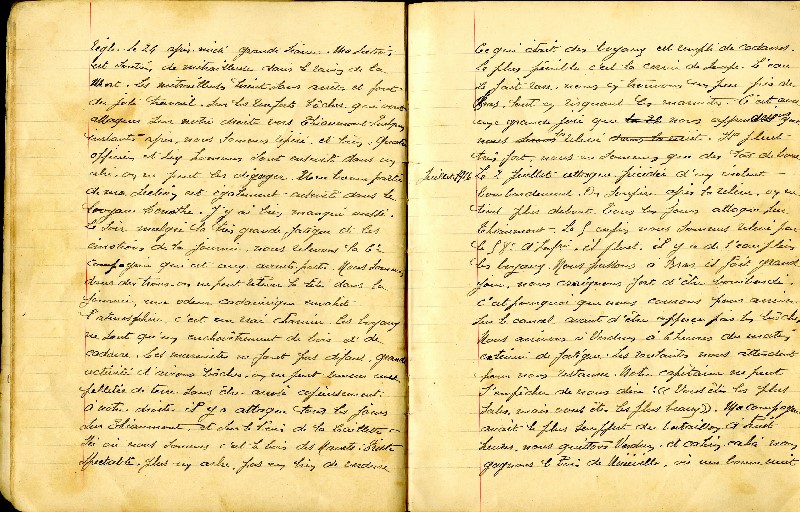 règle. Le 24 après-midi grande séance. Ma section
est section de mitrailleuses dans le ravin de la
Mort. Les mitrailleurs tirent sans arrêt et font
du joli travail. Sur les renforts boches qui vont
attaquer sur notre droite vers Thiaumont. Quelques
instants après, nous sommes repéré et bien. Quatre
officiers et dix hommes sont enterré dans un
abri. on ne peut les dégager. Une bonne partie
de ma section est également enterrée dans le
boyau. J'y ai bien manqué
Le soir malgré la très grande fatigue et les
émotions de la journée nous relevons la 6e
compagnie qui est aux avants postes. Nous sommes
dans des trous. on ne peut la tête dans la
journée, une odeur cadavérique envahit
l'atmosphère, c'est un vrai charnier. Les boyaux
ne sont qu'un enchevêtrement de bois et de
cadavre. Les nôtres font pas défaut, grande
activité d'avions boches. on ne peut une
pelletée de terre. sans être arrosé copieusement.
à notre droite il y a attaque tous les jours
sur Thiaumont et sur le bois de la
Ici où nous sommes c'est le bois des Triste
spectacle. plus un arbre, pas un brin de verdure
Ce qui était des boyaux est rempli de cadavres.
Le plus pénible c'est la corvée de soupe. L'eau
se fait rare, nous en trouvons un peu près de
Bras, tout en risquant les marmites. C'est avec
une grande joie que nous apprenons
nous relevé Il pleut
très fort, nous ne sommes que des tas de boue
Juillet 1916 Le 2 Juillet attaque précédée d'un violent
bombardement. On soupire après la relève, on ne
tient plus debout. Tous les jours attaque sur
Thiaumont. Le 5 enfin nous sommes relevé par
le d'Infrie. il pleut. il y a de l'eau plein
les boyaux. Nous passons à Bras il fait grand
jour. nous craignons fort d'être bombardé.
c'est pourquoi que nous courons pour arriver
sur le canal avant d'être aperçu par les boches
Nous arrivons à Verdun à 6 heures du matin
exténué de fatigue. Les cuistots nous attendent
pour nous restaurer. Notre capitaine ne peut
s'empêcher de nous dire: (( Vous êtes les plus
sales, mais vous êtes les plus beaux)). Ma compagnie
avait le plus souffert du bataillon. à huit
heures, nous quittons Verdun, et cahin, caha nous
gagnons le bois de où une bonne nuit